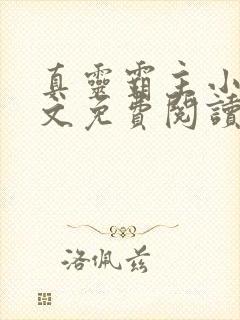 真靈霸主小
文免費閱讀
洛佩茲